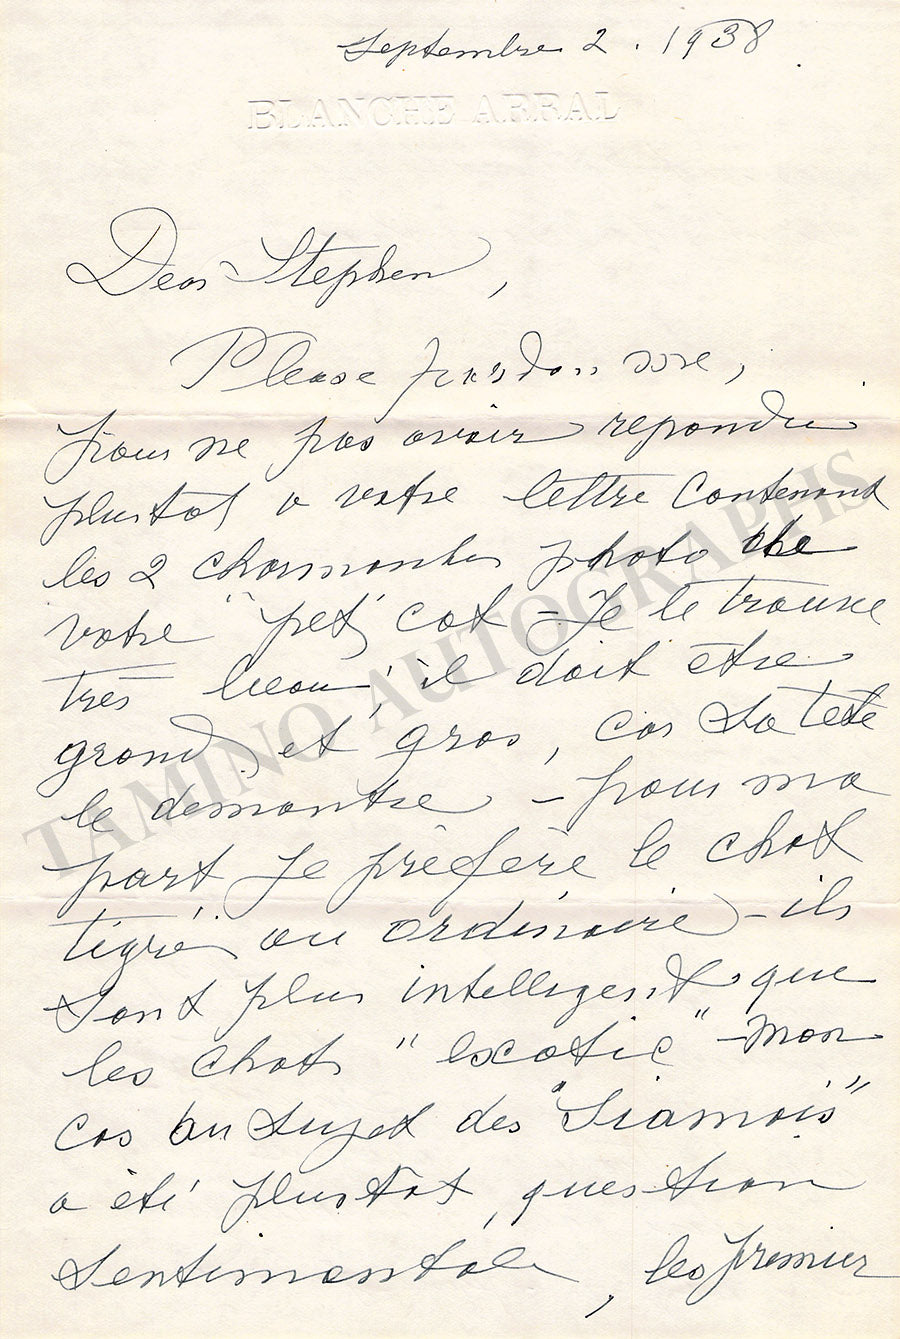 Septembre 2 . 1938
BLANCHE ARRAL
Dear Stephen,
Please pardon me,
pour ne pas avoir repondu
plustot a votre lettre contenant
les 2 charmantes photo de
votre "pet" cat - Je le trouve
très beau, il doit être
grand et gros, car sa tete
le demontre - pour ma
part je prèfère le chat
tigré ou ordinaire - ils
sont plus intelligent que
les chats "exotic" - mon
cas au sujet des "Siamois"
a èté plustôt, question
sentimentale, les premier
TAMINO AUTOGRAPHS